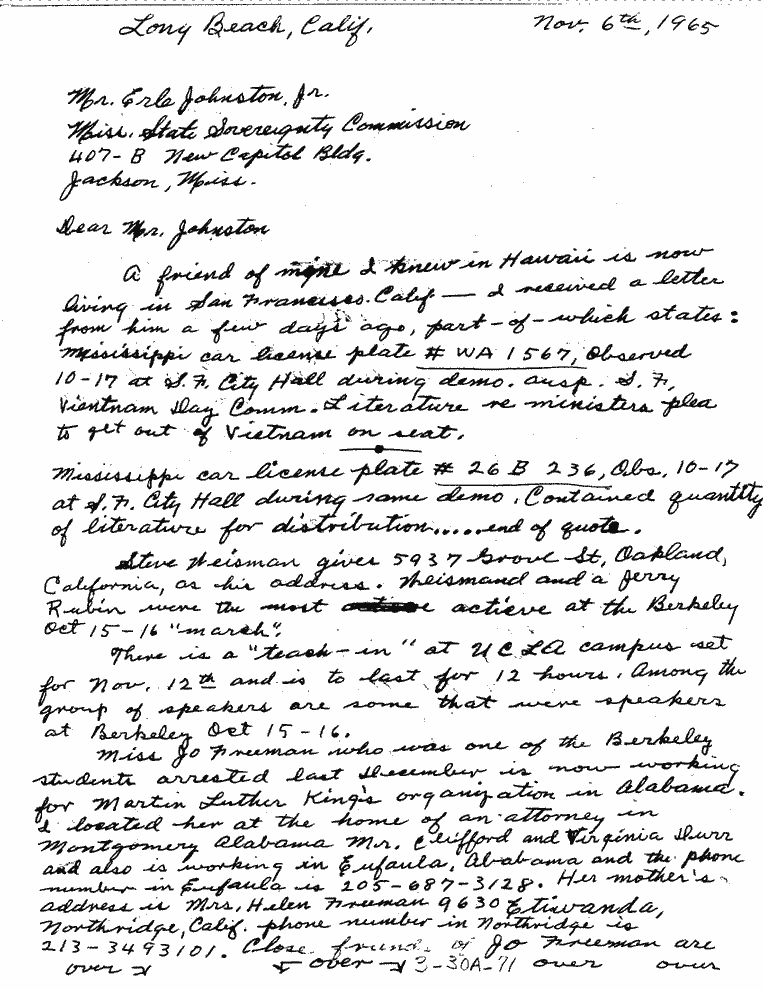 Long Beach, Calif. Nov. 6th, 1965
Mr. Erle Johnston, Jr.
Miss. State Sovereignty Commission
407-B New Capitol Bldg.
Jackson, Miss.
Dear Mr. Johnston
A friend of mine I knew in Hawaii is now
living in San Francisco. Calif — I received a letter
from him a few days ago, part-of-which states:
Mississippi car license plate # WA 1567, Observed
10-17 at S.F. City Hall during demo. ausp. S.F.
Vientnam Day Comm. Literature re ministers plea
to get out of Vietnam on seat.
Mississippi car license plate # 26 B 236, Obs. 10-17
at S.F. City Hall during same demo. Contained quantity
of literature for distribution.....end of quote.
Steve Weisman gives 5937 Grove St, Oakland,
California, as his address. Weismand and a Jerry
Rubin were the most actieve at the Berkeley
Oct 15-16 "march".
There is a "teach-in" at UCLA campus set
for Nov. 12th and is to last for 12 hours. Among the
group of speakers are some that were speakers
at Berkeley Oct 15-16.
Miss Jo Freeman who was one of the Berkeley
students arrested last December is now working
for Martin Luther King's organization in Alabama.
I located her at the home of an attorney in
Montgomery Alabama Mr. Clifford and Virginia Durr
and also is working in Eufaula, Alabama and the phone
number in Eufaula is 205-687-3128. Her mother's
address is Mrs, Helen Freeman 9630 Etiwanda,
Northridge, Calif. phone number in Northridge is
213-3493101. Close friends of Jo Freeman are
over over 3-30A-71 over over